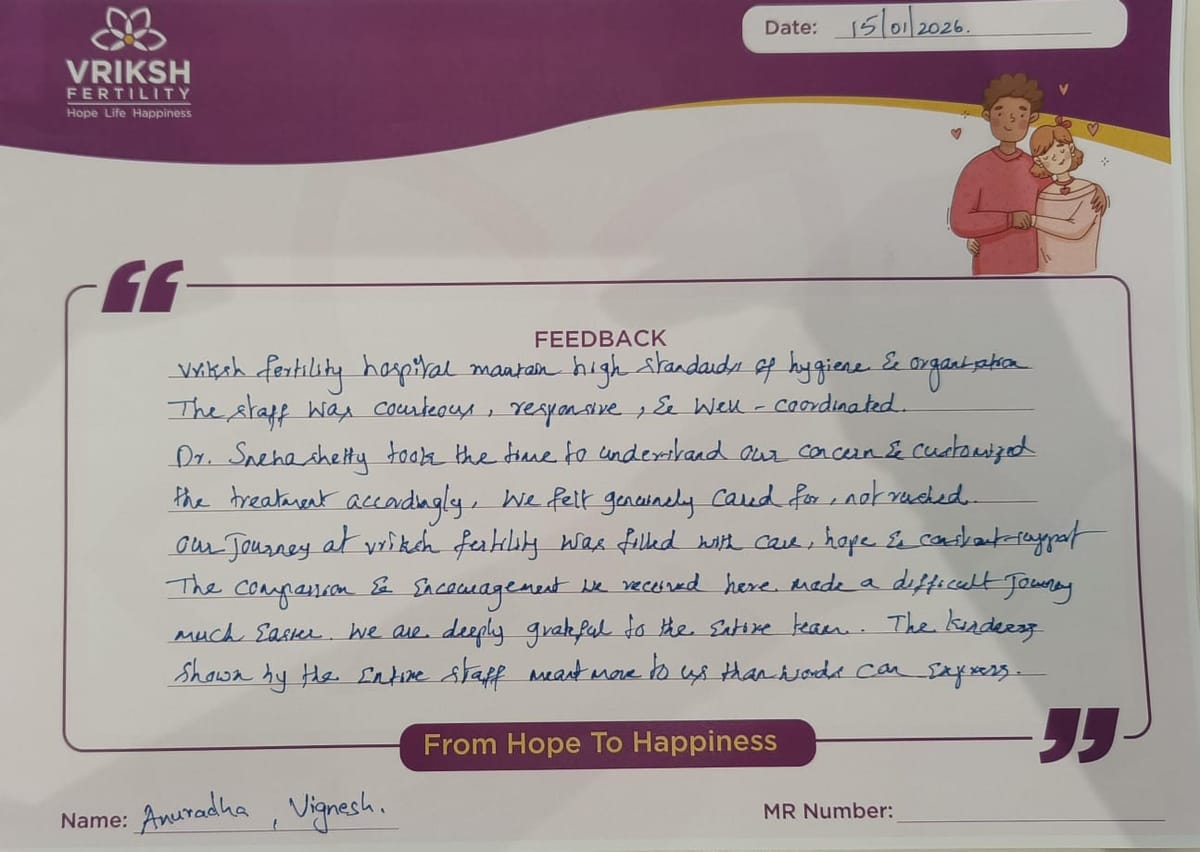 VRIKSH
FERTILITY
Hope Life Happiness
Date: 15/01/2026.
FEEDBACK
Vriksh fertility hospital maintain high standards of hygiene & organization
The staff was courteous, responsive, & well-coordinated.
Dr. Sneha shetty took the time to understand our concern & customized
the treatment accordingly. We felt genuinely cared for, not rushed.
Our Journey at vriksh fertility was filled with care, hope & constant-support
The compassion & Encouragement we received here made a difficult Journey
much Easier. We are deeply grateful to the Entire team. The kindness
shown by the Entire staff meant more to us than words can Express.
From Hope To Happiness
Name: Anuradha, Vignesh.
MR Number: